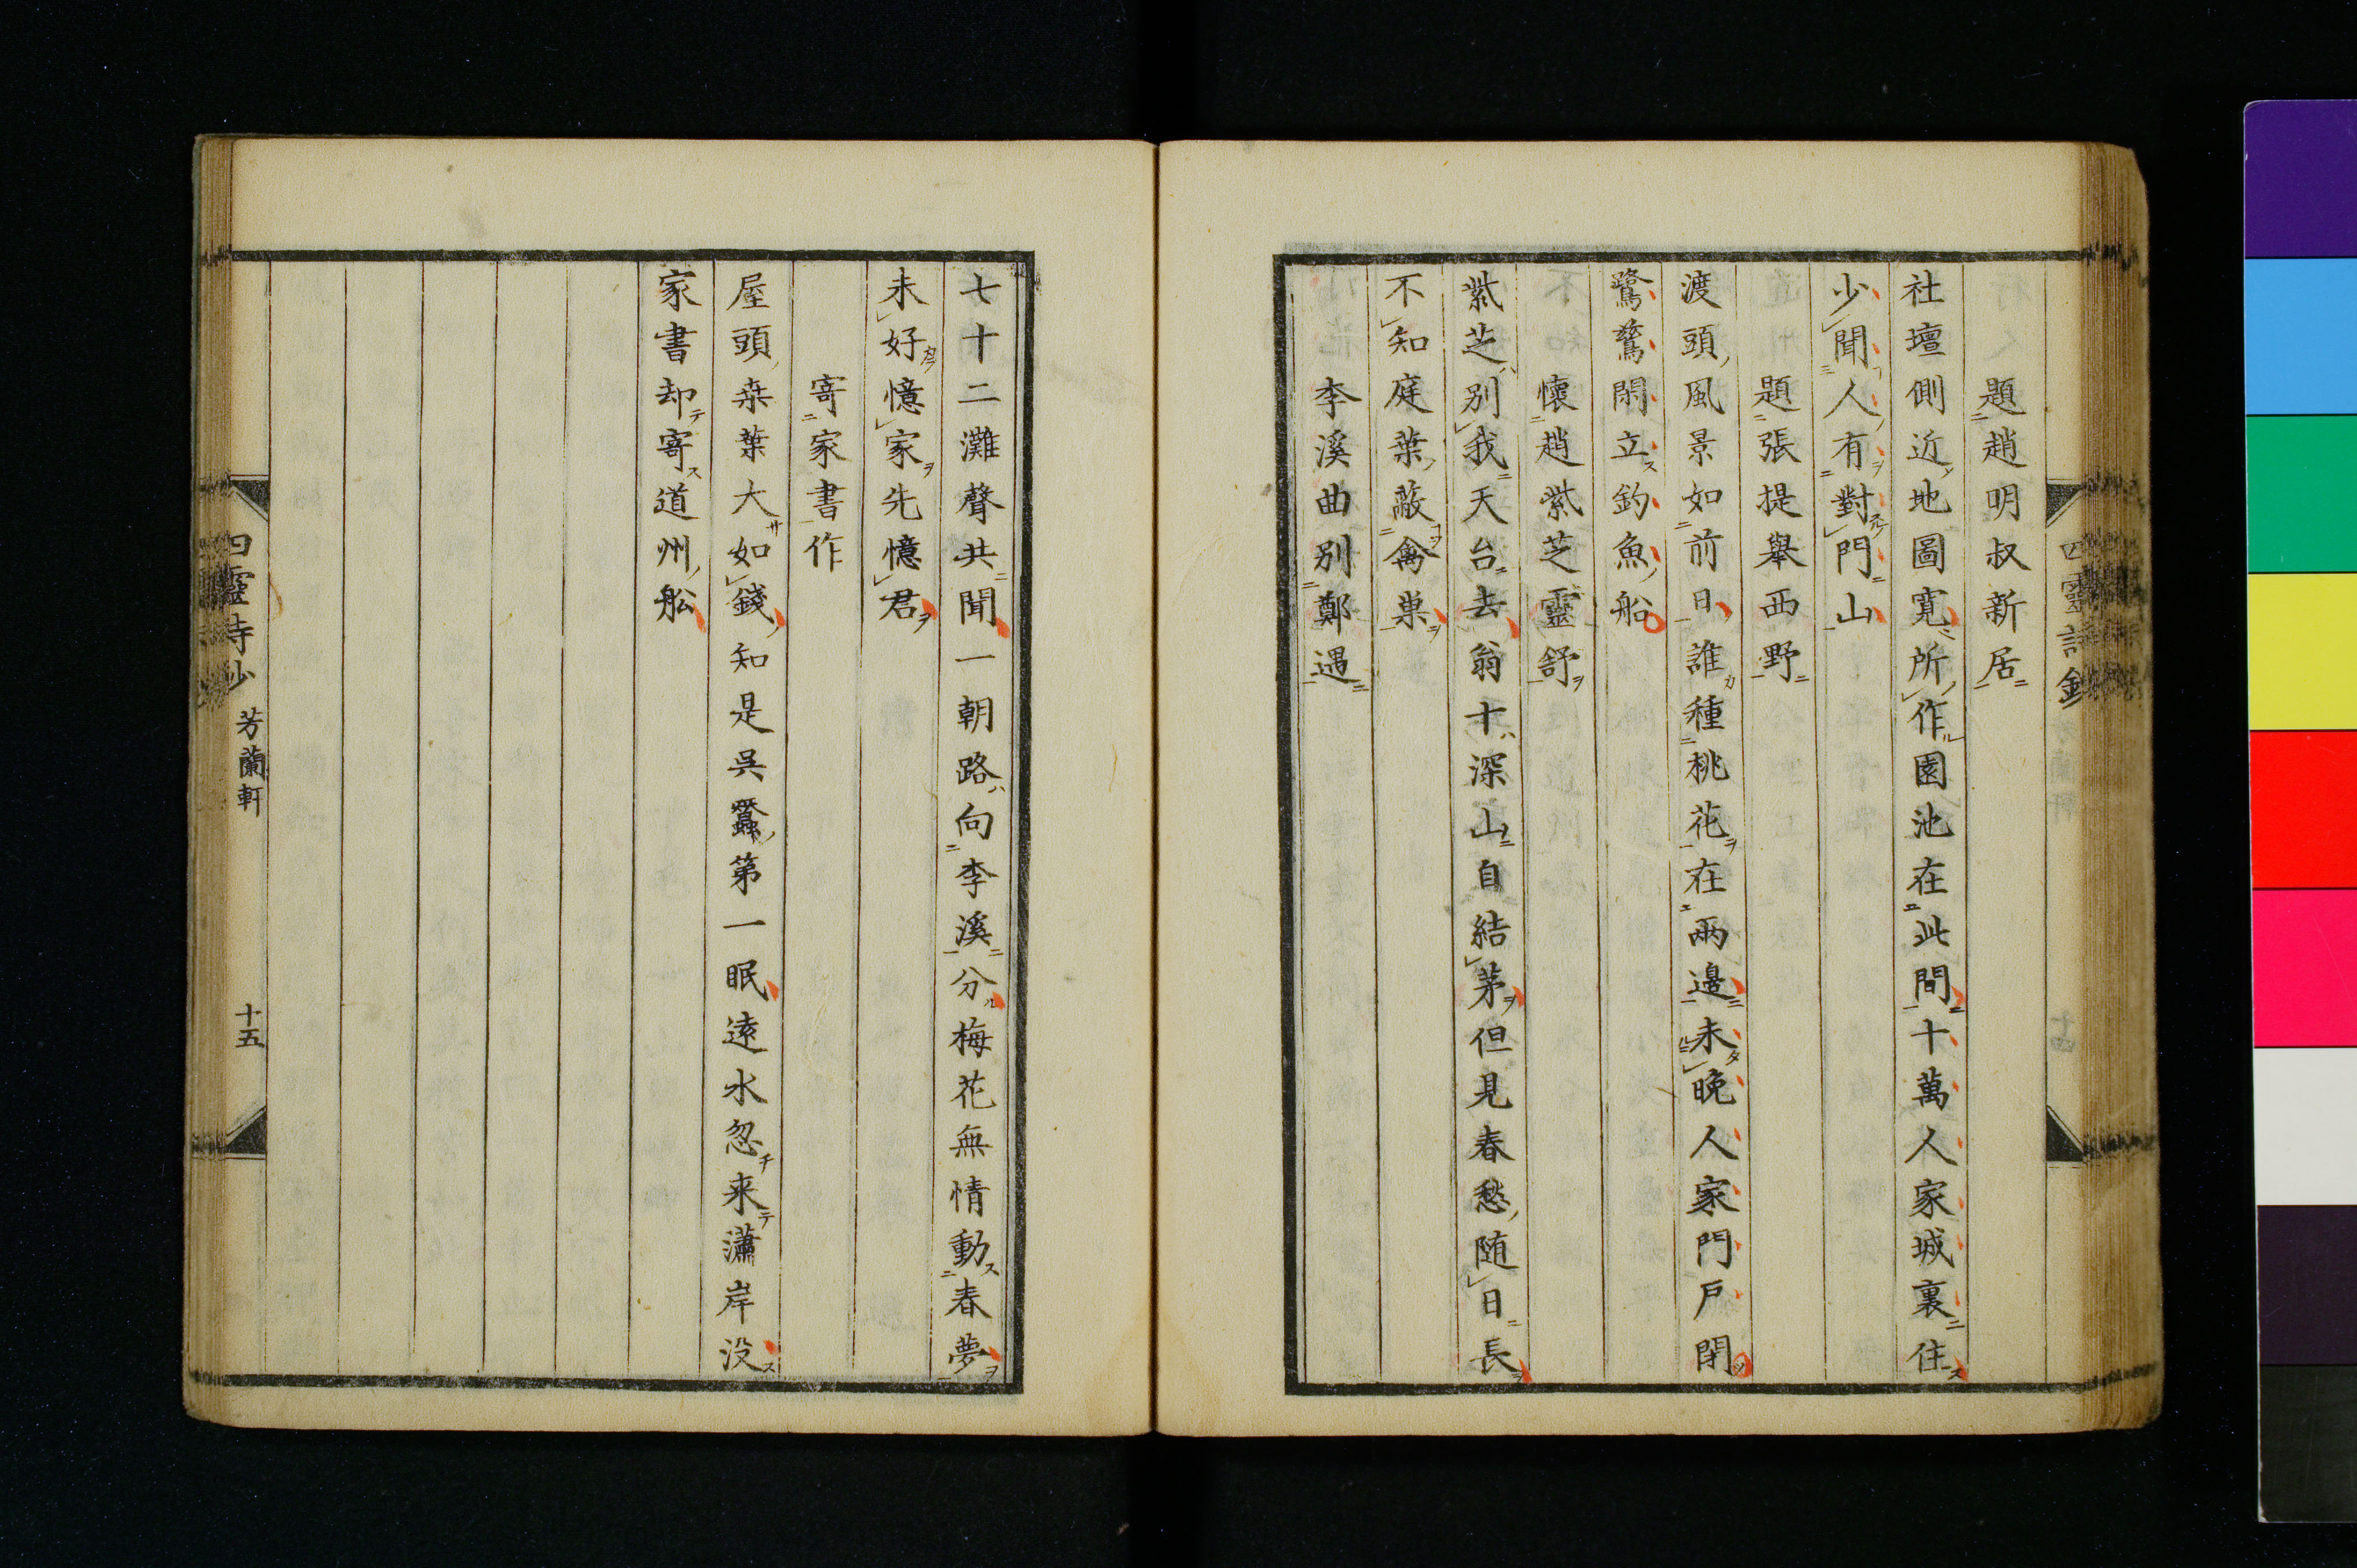 四靈詩鈔
題趙明叔新居
社壇側近地圖寬所作園池在此間十萬人家城裏住
少聞人有對門山
題張提舉西野
渡頭風景如前日誰種桃花在兩邊未晚人家門戶閉
鷺鶿閑立釣魚船
懷趙紫芝靈舒
紫芝別我天台去翁十深山自結茅但見春愁随日長
不知庭葉蔽禽巢
李溪曲別鄭遇
七十二灘聲共聞一朝路向李溪分梅花無情動春夢
未好憶家先憶君
寄家書作
屋頭桒葉大如錢知是吳蠶第一眠遠水忽来瀟岸没
家書却寄道州舩
四靈詩鈔 芳蘭軒 十五